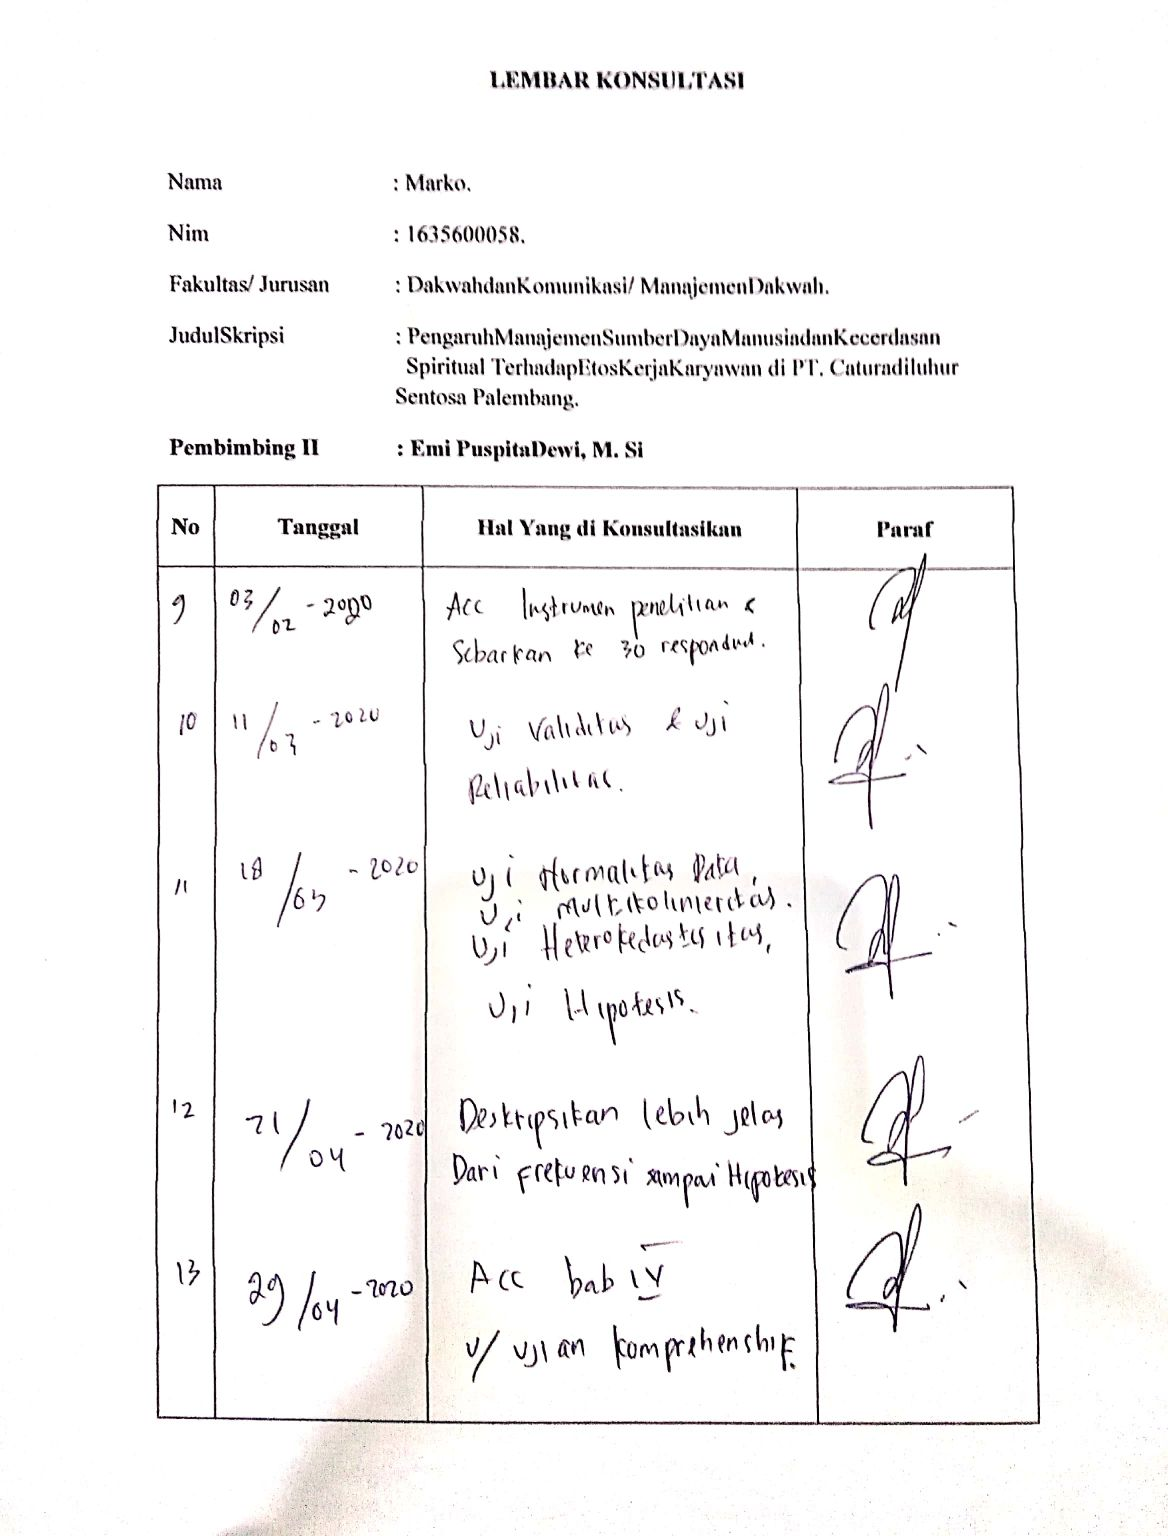 LEMBAR KONSULTASI
Nama : Marko.
Nim : 1635600058.
Fakultas/ Jurusan : DakwahdanKomunikasi/ ManajemenDakwah.
JudulSkripsi : PengaruhManajemenSumberDayaManusiadanKecerdasan
Spiritual TerhadapEtosKerjaKaryawan di PT. Caturadiluhur
Sentosa Palembang.
Pembimbing II : Emi PuspitaDewi, M. Si
No Tanggal Hal Yang di Konsultasikan Paraf
9 03/02 - 2020 Acc Instrumen penelitian &
Sebarkan ke 30 responden.
10 11/03 - 2020 Uji Validitas & Uji
Reliabilitas.
11 18/03 - 2020 Uji Normalitas Data,
Uji Multikolinieritas.
Uji Heterokedastisitas,
Uji Hipotesis.
12 21/04 - 2020 Deskripsikan lebih jelas
Dari Frekuensi sampai Hipotesis
13 29/04 - 2020 Acc bab IV
u/ ujian komprehenshif.